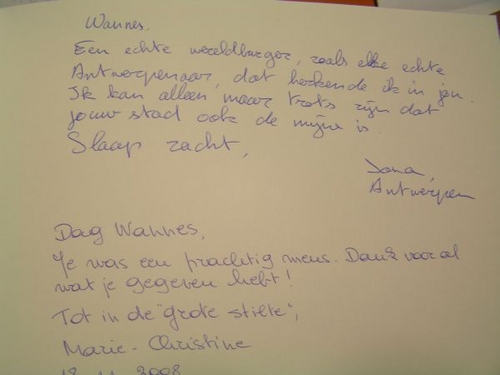 Wannes.
Een echte wereldburger, zoals elke echte
Antwerpenaar, dat herkende ik in jou.
Ik kan alleen maar trots zijn dat
jouw stad ook de mijne is.
Slaap zacht,
Jona,
Antwerpen
Dag Wannes,
Je was een prachtig mens. Dank voor al
wat je gegeven hebt!
Tot in de "grote stilte",
Marie-Christine
2008